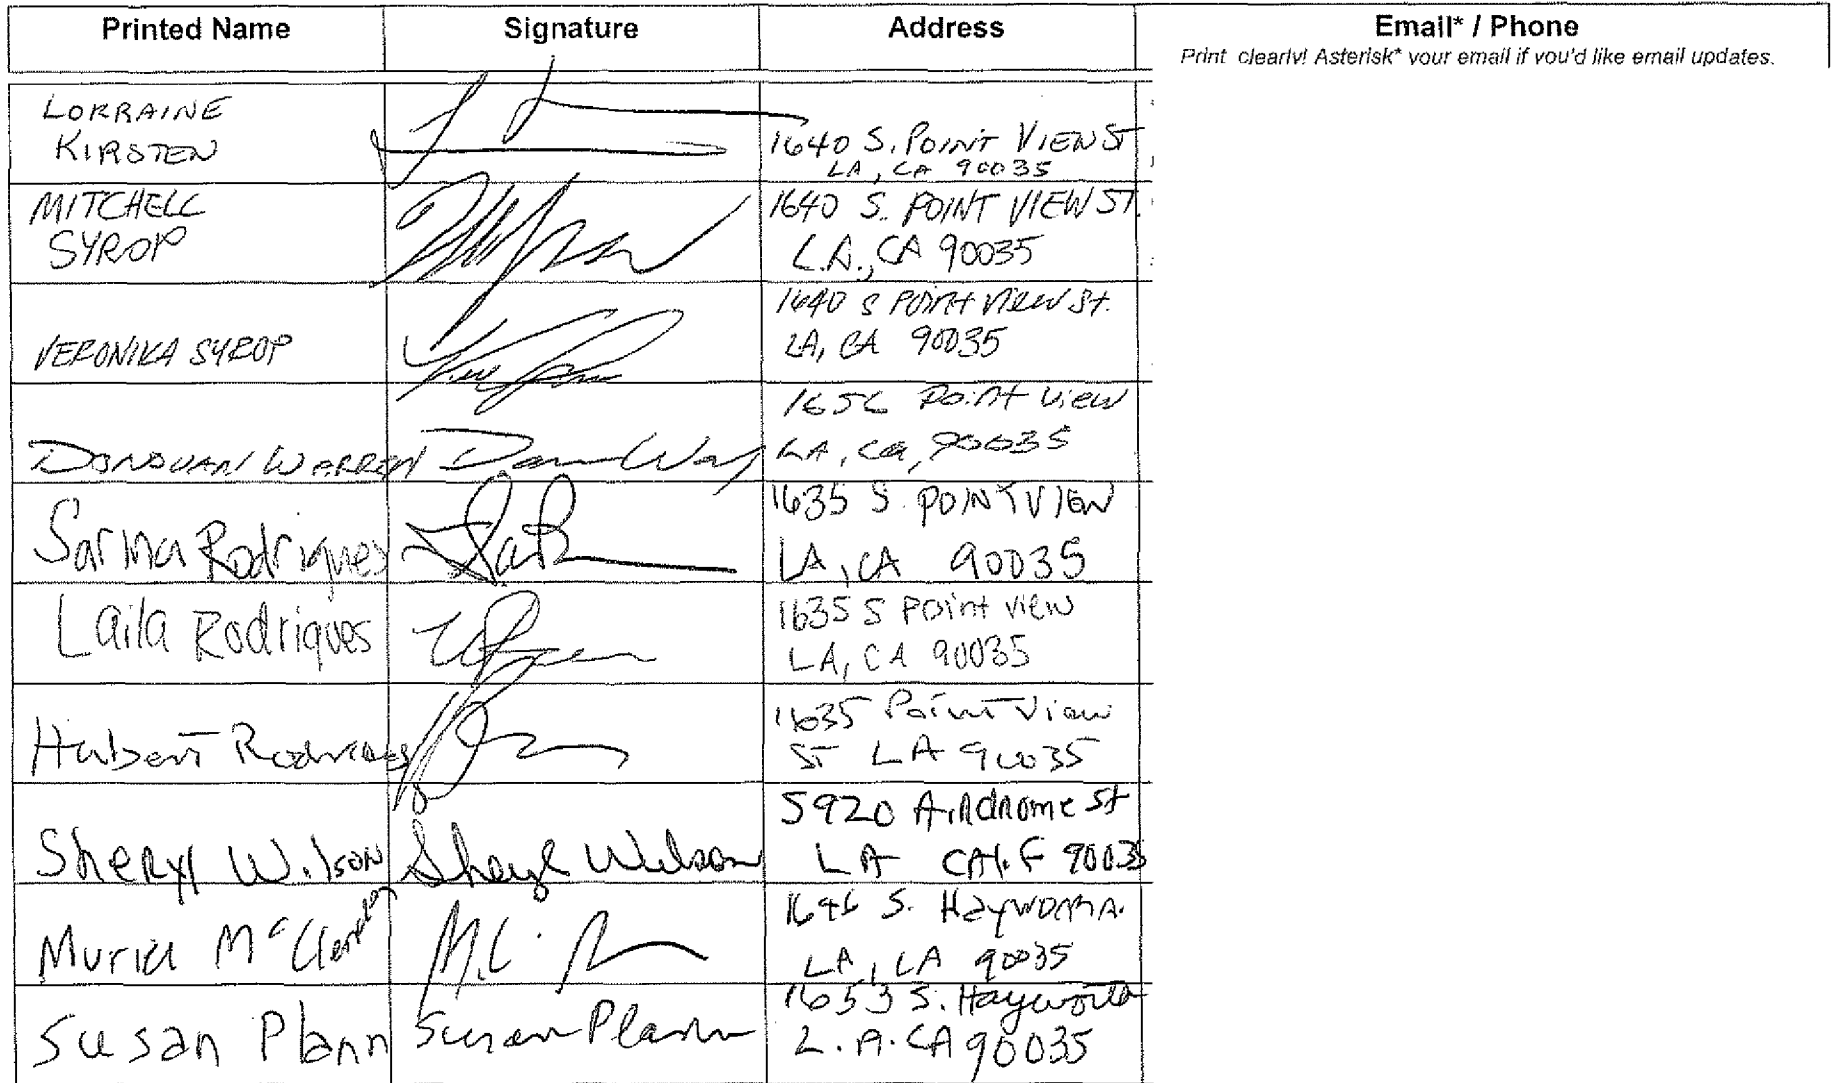 Printed Name Signature Address Email* / Phone
Print clearly! Asterisk* your email if you'd like email updates.
LORRAINE
KIRSTEN
1640 S. POINT VIEW ST
LA, CA 90035
MITCHELL
SYROP
1640 S. POINT VIEW ST.
L.A., CA 90035
VERONIKA SYROP
1640 S POINT View St.
LA, CA 90035
DONOVAN WARREN
1656 Point View
LA, Ca, 90035
Sarina Rodrigues
1635 S. POINT VIEW
LA, CA 90035
Laila Rodrigues
1635 S Point view
LA, CA 90035
Hubert Rodrigues
1635 Point View
ST LA 90035
Sheryl Wilson Sheryl Wilson
5920 Airdrome St
LA CALIF 90035
Muriel McClendon
S. Hayworth
LA, CA 90035
Susan Plann Susan Plann
1653 S. Hayworth
L.A. CA 90035